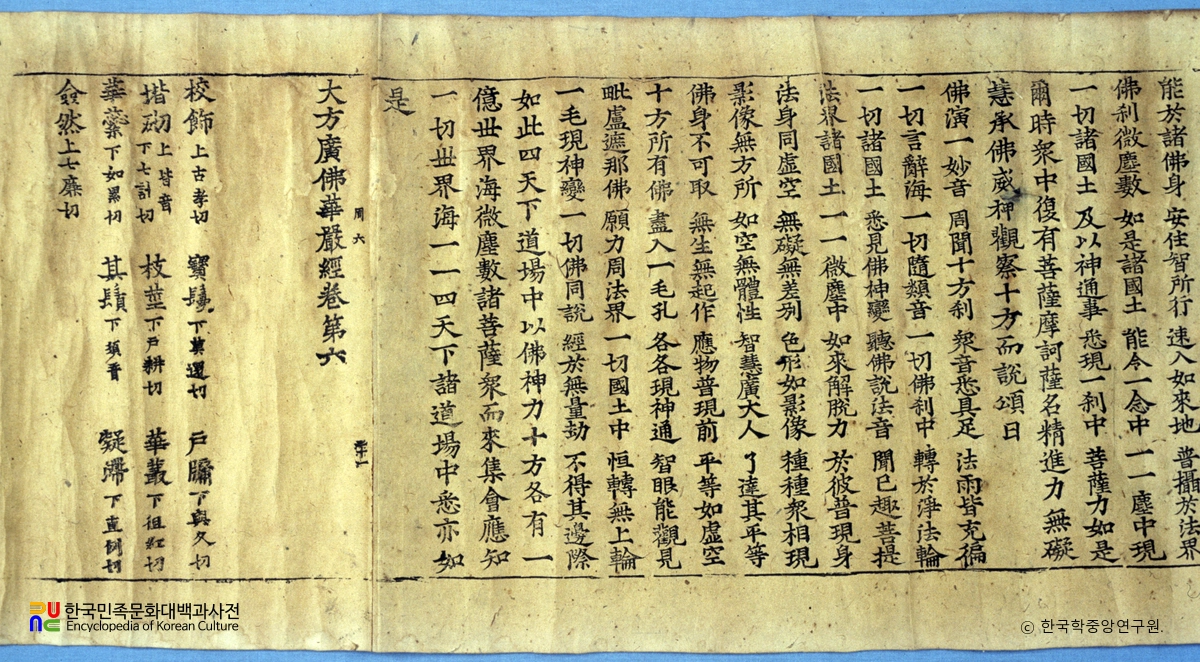 能於諸佛身 安住智所行 速入如來地 普攝於法界
佛刹微塵數 如是諸國土 能令一念中 一一塵中現
一切諸國土 及以神通事 悉現一刹中 菩薩力如是
爾時衆中復有菩薩摩訶薩名精進力無礙
慧承佛威神觀察十方而說頌曰
佛演一妙音 周聞十方刹 衆音悉具足 法雨皆充徧
一切言辭海 一切隨類音 一切佛刹中 轉於淨法輪
一切諸國土 悉見佛神變 聽佛說法音 聞已趣菩提
法界諸國土 一一微塵中 如來解脫力 於彼普現身
法身同虛空 無礙無差別 色形如影像 種種衆相現
影像無方所 如空無體性 智慧廣大人 了達其平等
佛身不可取 無生無起作 應物普現前 平等如虛空
十方所有佛 盡入一毛孔 各各現神通 智眼能觀見
毗盧遮那佛 願力周法界 一切國土中 恒轉無上輪
一毛現神變 一切佛同說 經於無量劫 不得其邊際
如此四天下道場中以佛神力十方各有一
億世界海微塵數諸菩薩衆而來集會應知
一切世界海一一四天下諸道場中悉亦如
是
周六
大方廣佛華嚴經卷第六
校飾 上古孝切 寶鬘 下莫還切 戶牖 下與久切
堦砌 上皆音 下七計切 枝莖 下戶耕切 華藂 下徂紅切
華蘂 下如累切 其鬚 下須音 凝滯 下直例切
僉然 上七廉切
한국민족문화대백과사전
Encyclopedia of Korean Culture
© 한국학중앙연구원.